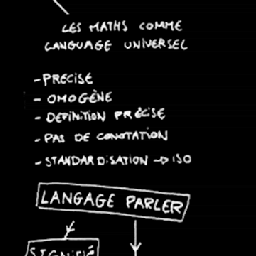 LES MATHS COMME
LANGUAGE UNIVERSEL
- PRECISE
- OMOGÈNE
- DEFINITION PRÉCISE
- PAS DE CONOTATION
- STANDARDISATION → ISO
LANGAGE PARLER
SIGNIFIÉ